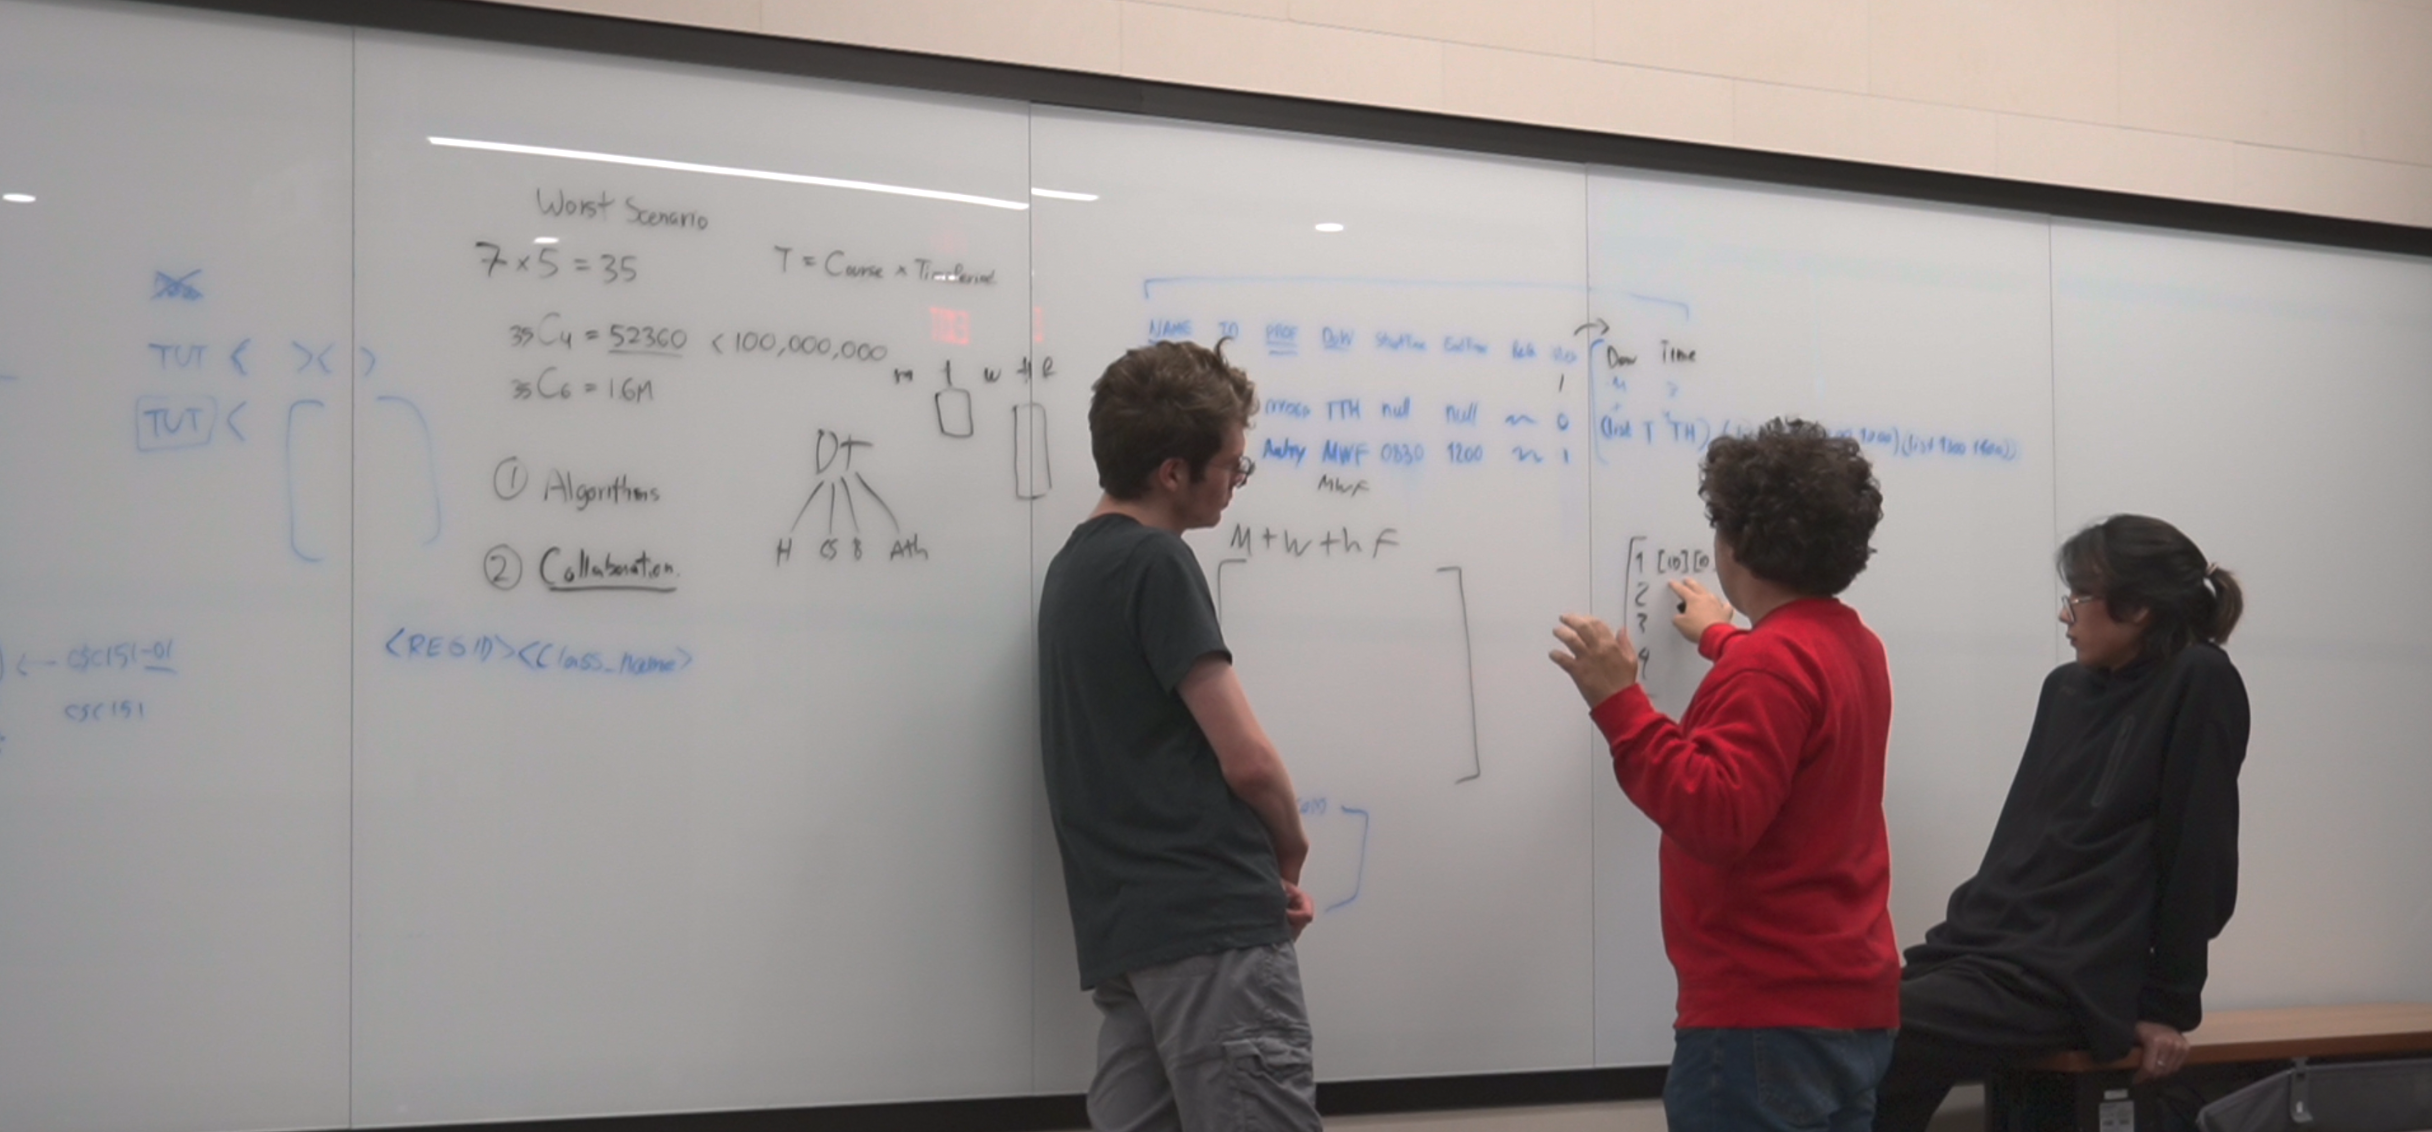 TUT < >< >
TUT <
← CSC151-01
CSC151
Worst Scenario
7 × 5 = 35
T = Course × Time Period
35C4 = 52360 < 100,000,000
35C6 = 1.6M
① Algorithms
② Collaboration.
<REGID><Class_name>
m t w th F
DT
H CS B Ath
NAME ID PROF DoW StartTime EndTime
1
TTH null null ~ 0
Autry MWF 0830 1200 ~ 1
MWF
M + W + h F
Dow Time
(list T TH)
(list 1300 1600))
1 [10][0
2
3
4